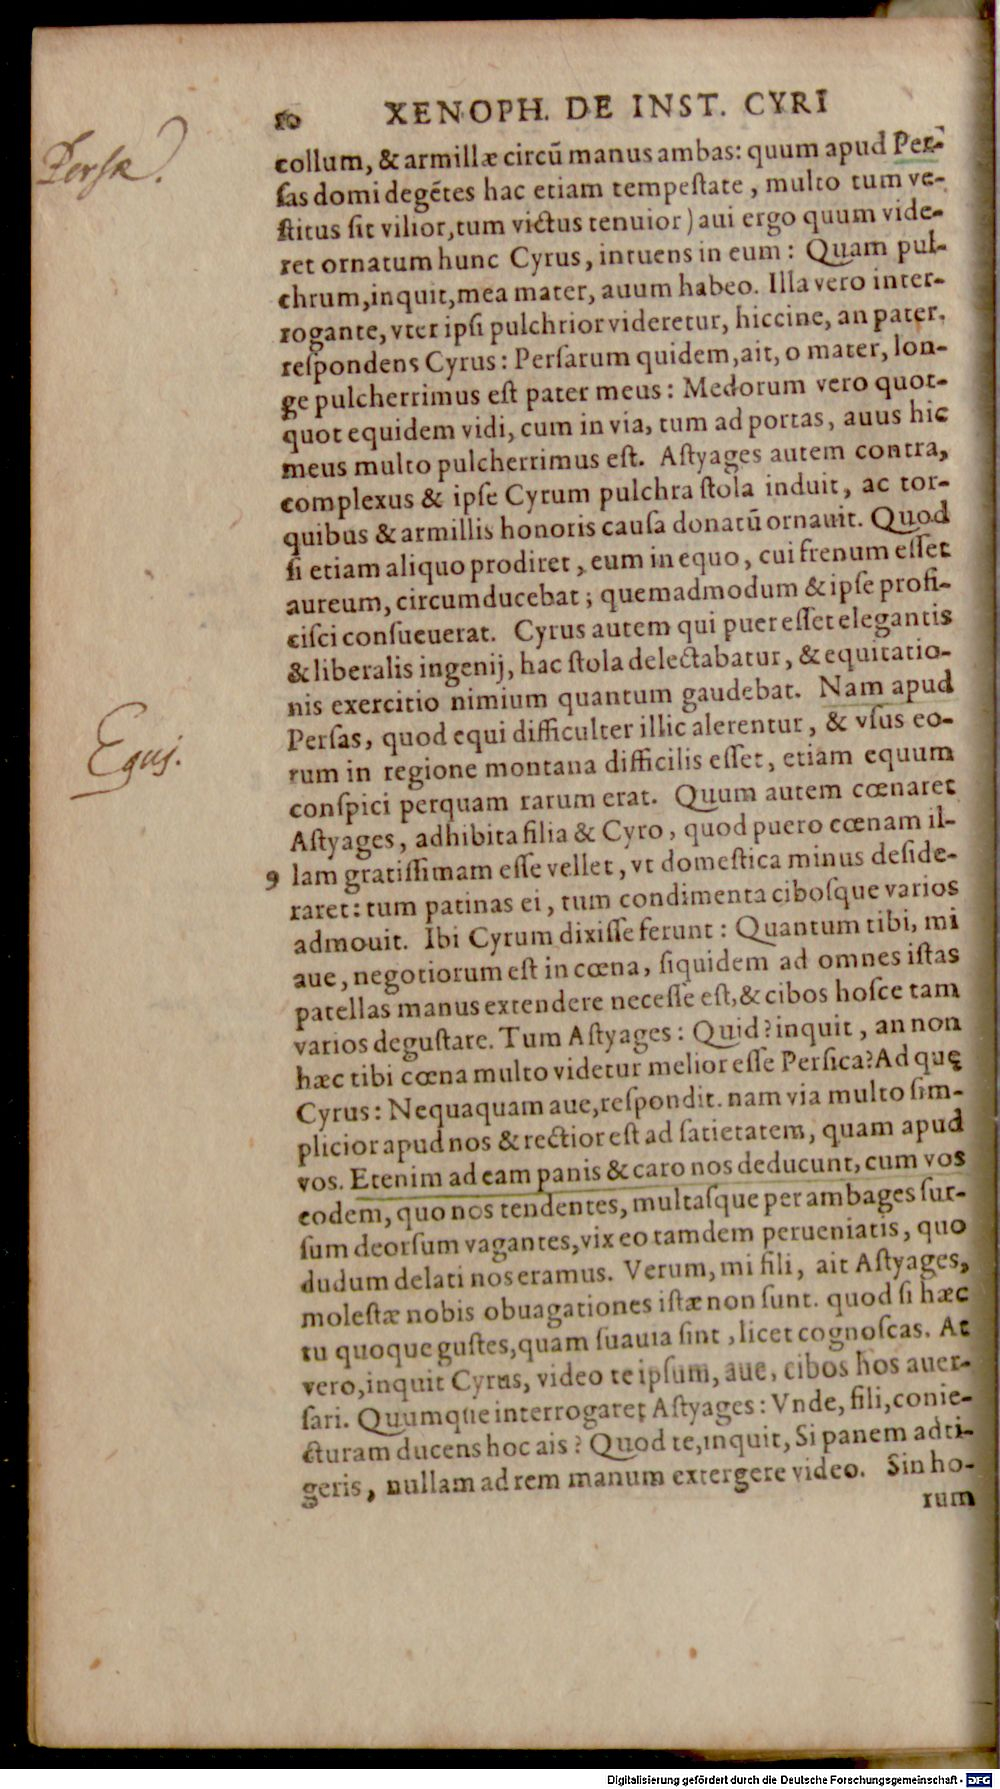 10 XENOPH. DE INST. CYRI
Persæ.
collum, & armillæ circū manus ambas: quum apud Per-
ſas domi degētes hac etiam tempeſtate, multo tum ve-
ſtitus ſit vilior, tum victus tenuior) aui ergo quum vide-
ret ornatum hunc Cyrus, intuens in eum: Quam pul-
chrum, inquit, mea mater, auum habeo. Illa vero inter-
rogante, vter ipſi pulchrior videretur, hiccine, an pater,
reſpondens Cyrus: Perſarum quidem, ait, o mater, lon-
ge pulcherrimus eſt pater meus: Medorum vero quot-
quot equidem vidi, cum in via, tum ad portas, auus hic
meus multo pulcherrimus eſt. Aſtyages autem contra,
complexus & ipſe Cyrum pulchra ſtola induit, ac tor-
quibus & armillis honoris cauſa donatū ornauit. Quod
ſi etiam aliquo prodiret, eum in equo, cui frenum eſſet
aureum, circumducebat; quemadmodum & ipſe profi-
ciſci conſueuerat. Cyrus autem qui puer eſſet elegantis
& liberalis ingenij, hac ſtola delectabatur, & equitatio-
nis exercitio nimium quantum gaudebat. Nam apud
Equi.
Perſas, quod equi difficulter illic alerentur, & vſus eo-
rum in regione montana difficilis eſſet, etiam equum
conſpici perquam rarum erat. Quum autem cœnaret
Aſtyages, adhibita filia & Cyro, quod puero cœnam il-
9 lam gratiſſimam eſſe vellet, vt domeſtica minus deſide-
raret: tum patinas ei, tum condimenta ciboſque varios
admouit. Ibi Cyrum dixiſſe ferunt: Quantum tibi, mi
aue, negotiorum eſt in cœna, ſiquidem ad omnes iſtas
patellas manus extendere neceſſe eſt, & cibos hoſce tam
varios deguſtare. Tum Aſtyages: Quid? inquit, an non
hæc tibi cœna multo videtur melior eſſe Perſica? Ad quę
Cyrus: Nequaquam aue, reſpondit. nam via multo ſim-
plicior apud nos & rectior eſt ad ſatietatem, quam apud
vos. Etenim ad eam panis & caro nos deducunt, cum vos
eodem, quo nos tendentes, multaſque per ambages ſur-
ſum deorſum vagantes, vix eo tamdem perueniatis, quo
dudum delati nos eramus. Verum, mi fili, ait Aſtyages,
moleſtæ nobis obuagationes iſtæ non ſunt. quod ſi hæc
tu quoque guſtes, quam ſuauia ſint, licet cognoſcas. At
vero, inquit Cyrus, video te ipſum, aue, cibos hos auer-
ſari. Quumque interrogaret Aſtyages: Vnde, fili, conie-
cturam ducens hoc ais? Quod te, inquit, Si panem adti-
geris, nullam ad rem manum extergere video. Sin ho-
rum
Digitalisierung gefördert durch die Deutsche Forschungsgemeinschaft - DFG